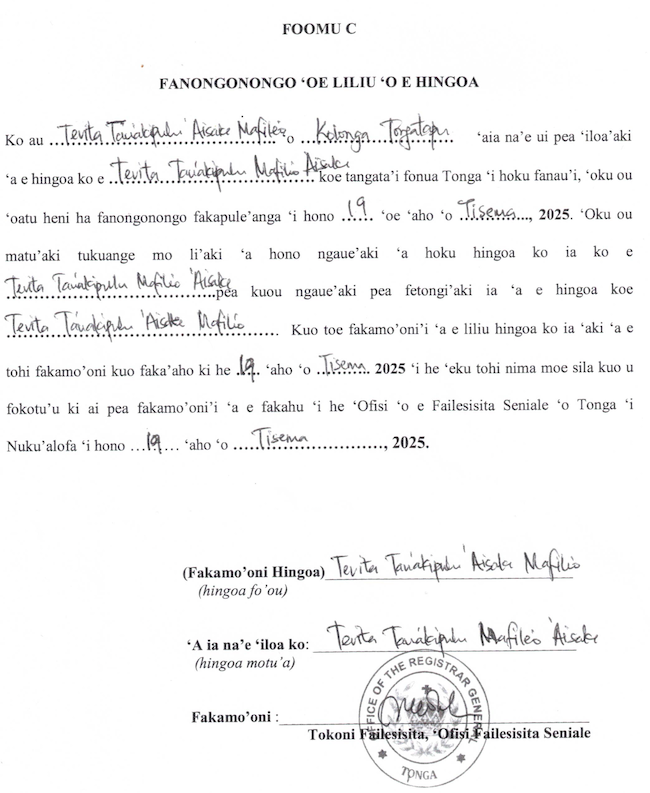 FOOMU C
FANONGONONGO ‘OE LILIU ‘O E HINGOA
Ko au Tevita Tau'akipulu 'Aisake Mafile'o o Kolonga Tongatapu ‘aia na’e ui pea ‘iloa’aki
‘a e hingoa ko e Tevita Tau'akipulu Mafile'o 'Aisake koe tangata’i fonua Tonga ‘i hoku fanau’i, ‘oku ou
‘oatu heni ha fanongonongo fakapule’anga ‘i hono 19 ‘oe ‘aho ‘o Tisema, 2025. ‘Oku ou
matu’aki tukuange mo li’aki ‘a hono ngaue’aki ‘a hoku hingoa ko ia ko e
Tevita Tau'akipulu Mafile'o 'Aisake pea kuou ngaue’aki pea fetongi’aki ia ‘a e hingoa koe
Tevita Tau'akipulu 'Aisake Mafile'o. Kuo toe fakamo’oni’i ‘a e liliu hingoa ko ia ‘aki ‘a e
tohi fakamo’oni kuo faka’aho ki he 19 ‘aho ‘o Tisema 2025 ‘i he ‘eku tohi nima moe sila kuo u
fokotu’u ki ai pea fakamo’oni’i ‘a e fakahu ‘i he ‘Ofisi ‘o e Failesisita Seniale ‘o Tonga ‘i
Nuku’alofa ‘i hono 19 ‘aho ‘o Tisema, 2025.
(Fakamo’oni Hingoa) Tevita Tau'akipulu 'Aisake Mafile'o
(hingoa fo’ou)
‘A ia na’e ‘iloa ko: Tevita Tau'akipulu Mafile'o 'Aisake
(hingoa motu’a)
OFFICE OF THE REGISTRAR GENERAL
Fakamo’oni :
Tokoni Failesisita, ‘Ofisi Failesisita Seniale
TONGA